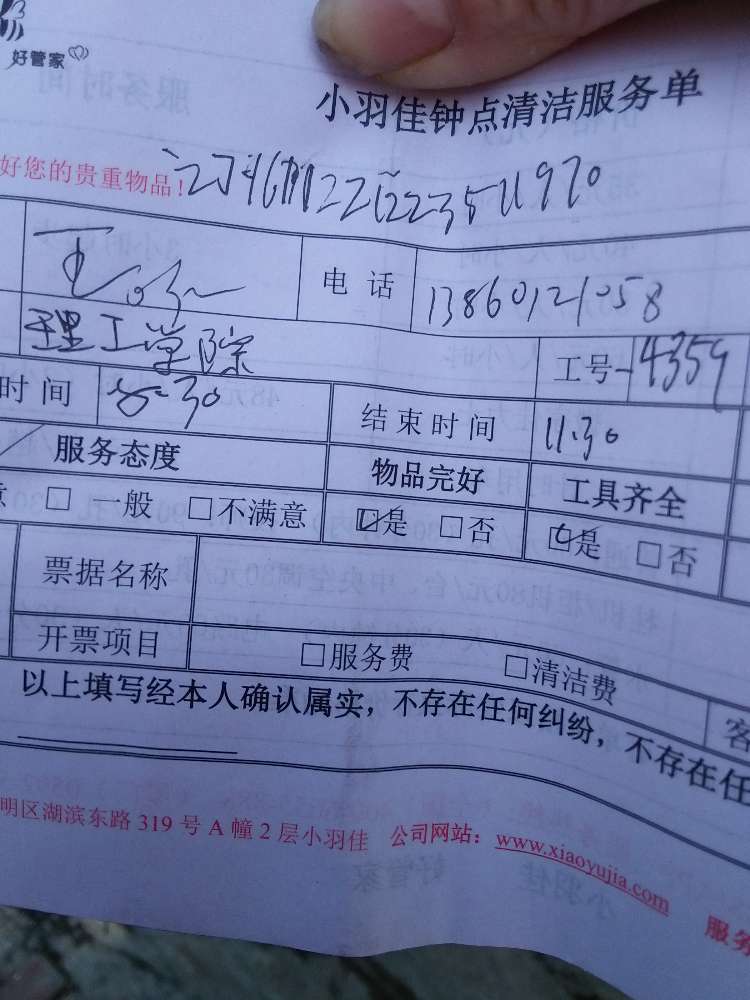 好管家
小羽佳钟点清洁服务单
好您的贵重物品!
电 话 13860121058
理工学院 工号 4359
时 间 8:30 结 束 时 间 11:30
服务态度 物品完好 工具齐全
意 □ 一般 □不满意 ☑是 □否 ☑是 □否
票据名称
开票项目 □服务费 □清洁费
以上填写经本人确认属实，不存在任何纠纷，不存在任
客
明区湖滨东路 319 号 A 幢 2 层小羽佳 公司网站：www.xiaoyujia.com
服务